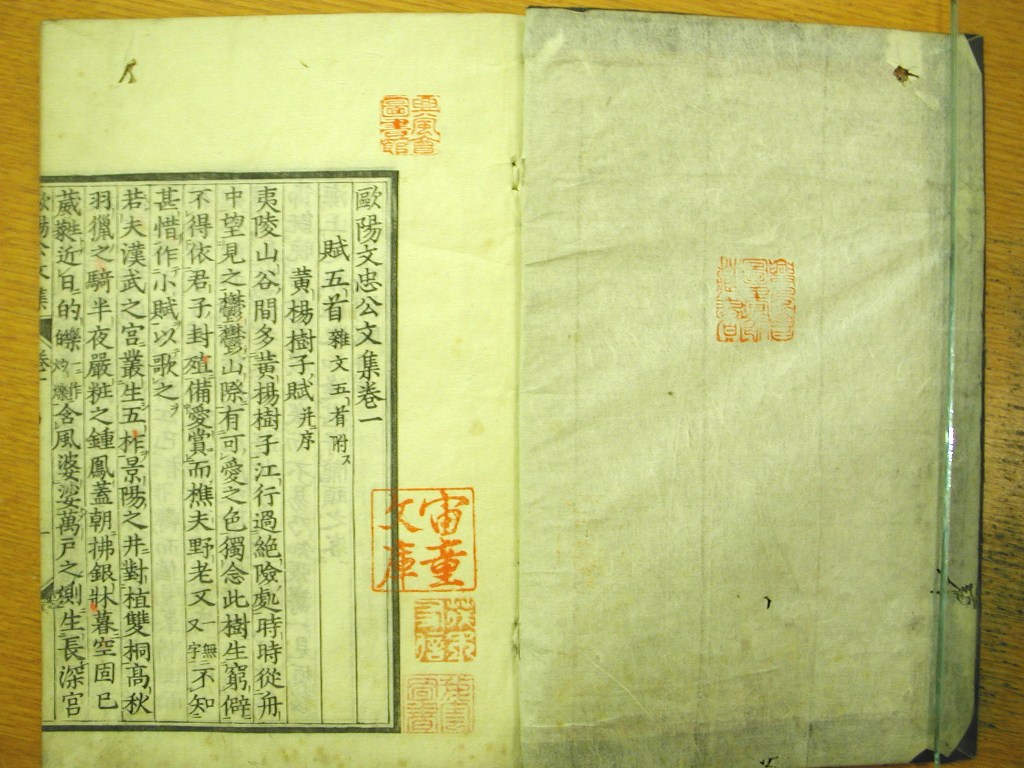 歐陽文忠公文集卷一
賦五首雜文五首附ス
黃楊樹子賦并序
夷陵山谷間多黃楊樹子江行過絕險處時時從舟
中望見之鬱鬱山際有可愛之色獨念此樹生窮僻
不得依君子封殖備愛賞而樵夫野老又一無又字不知
甚惜作小賦以歌之
若夫漢武之宮叢生五柞景陽之井對植雙桐高秋
羽獵之騎半夜嚴粧之鍾鳳蓋朝拂銀牀暮空固已
葳蕤近日的皪一作灼爍含風婆娑萬戶之側生長深宮
興風會
圖書館
宙童
文庫